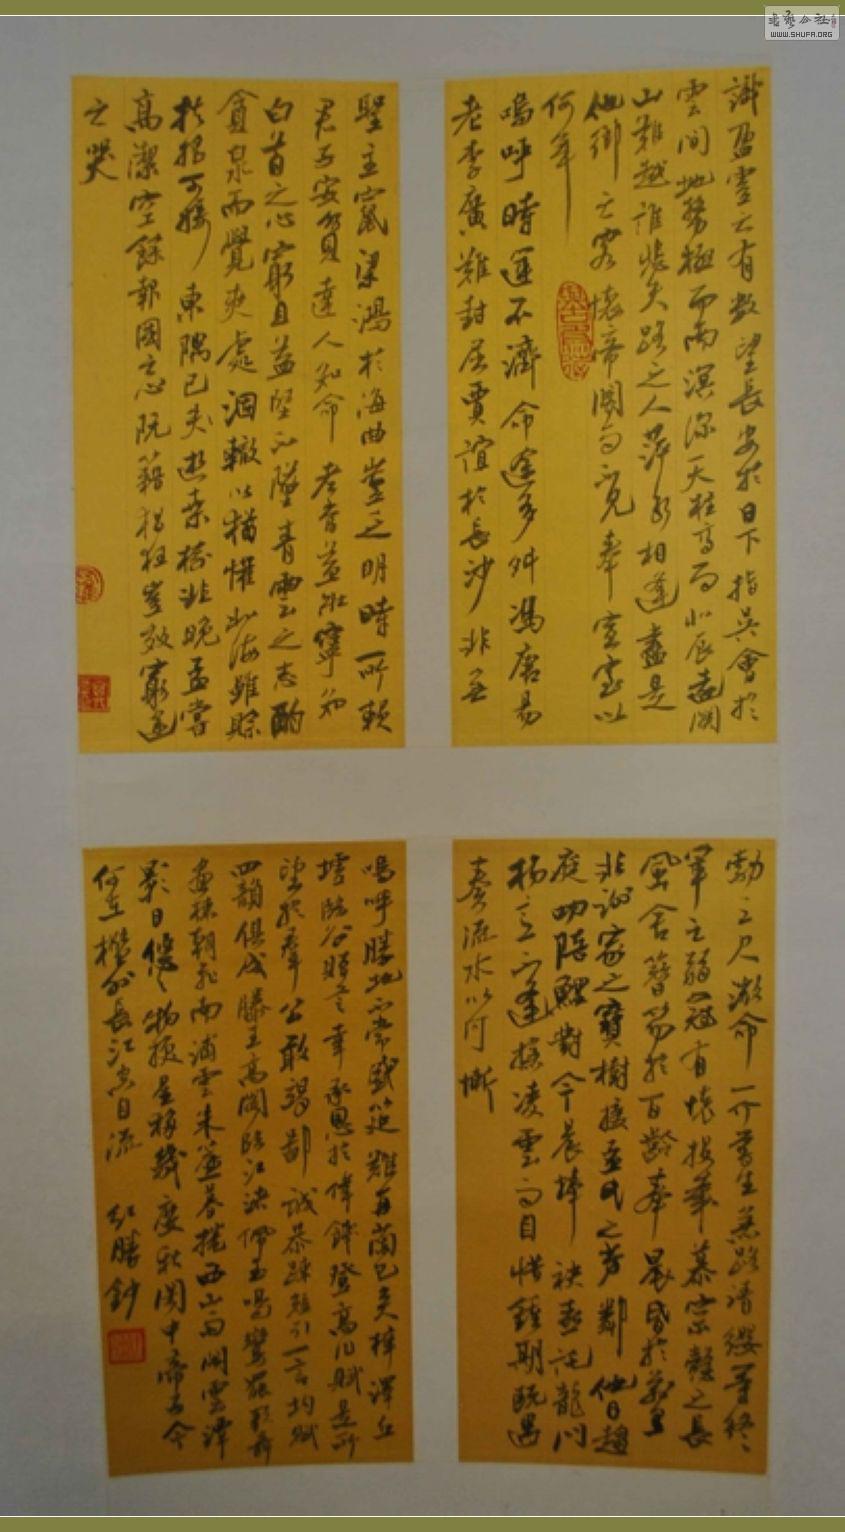 識盈虛之有數望長安於日下指吳會於
雲間地勢極而南溟深天柱高而北辰遠關
山難越誰悲失路之人萍水相逢盡是
他鄉之客懷帝閽而不見奉宣室以
何年
嗚呼時運不濟命途多舛馮唐易
老李廣難封屈賈誼於長沙非無
聖主竄梁鴻於海曲豈乏明時所賴
君子安貧達人知命老當益壯寧知
白首之心窮且益堅不墜青雲之志酌
貪泉而覺爽處涸轍以猶懽北海雖賒
扶搖可接東隅已失逝桑榆非晚孟嘗
高潔空餘報國之心阮籍猖狂豈效窮途
之哭
勃三尺微命一介書生無路請纓等終
軍之弱冠有懷投筆慕宗愨之長
風舍簪笏於百齡奉晨昏於萬里
非謝家之寶樹接孟氏之芳鄰他日趨
庭叨陪鯉對今晨捧袂喜託龍門
楊意不逢撫凌雲而自惜鍾期既遇
奏流水以何慚
嗚呼勝地不常盛筵難再蘭已矣梓澤丘
墟臨別贈言幸承恩於偉餞登高作賦是所
望於羣公敢竭鄙誠恭疏短引一言均賦
四韻俱成滕王高閣臨江渚佩玉鳴鸞罷歌舞
畫棟朝飛南浦雲朱簾暮捲西山雨閒雲潭
影日悠悠物換星移幾度秋閣中帝子今
何在檻外長江空自流 勝鈔
書藝公社
WWW.SHUFA.ORG